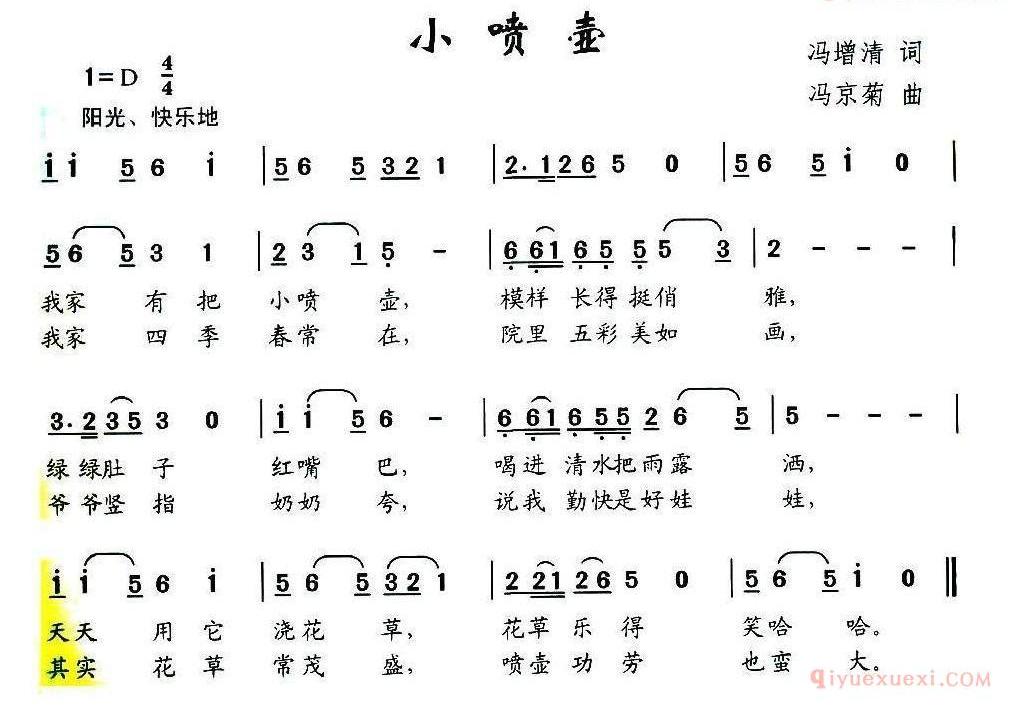 小喷壶
1=D 4/4
冯增清 词
冯京菊 曲
阳光、快乐地
i i 5 6 i | 5 6 5 3 2 1 | 2· 1 2 6 5 0 | 5 6 5 i 0 |
5 6 5 3 1 | 2 3 1 5 - | 6 6 1 6 5 5 5 3 | 2 - - - |
我家 有 把 小喷 壶, 模样 长得 挺俏 雅,
我家 四 季 春常 在, 院里 五彩 美如 画,
3· 2 3 5 3 0 | i i 5 6 - | 6 6 1 6 5 5 2 6 5 | 5 - - - |
绿 绿肚 子 红嘴 巴, 喝进 清水把雨露 洒,
爷 爷竖 指 奶奶 夸, 说我 勤快是好娃 娃,
i i 5 6 i | 5 6 5 3 2 1 | 2 2 1 2 6 5 0 | 5 6 5 i 0 ‖
天天 用 它 浇花 草, 花草 乐 得 笑哈 哈。
其实 花 草 常茂 盛, 喷壶 功 劳 也蛮 大。
qiyuexuexi.COM